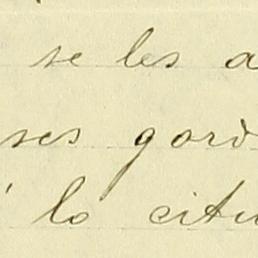 se les a
ses gord
lo citu